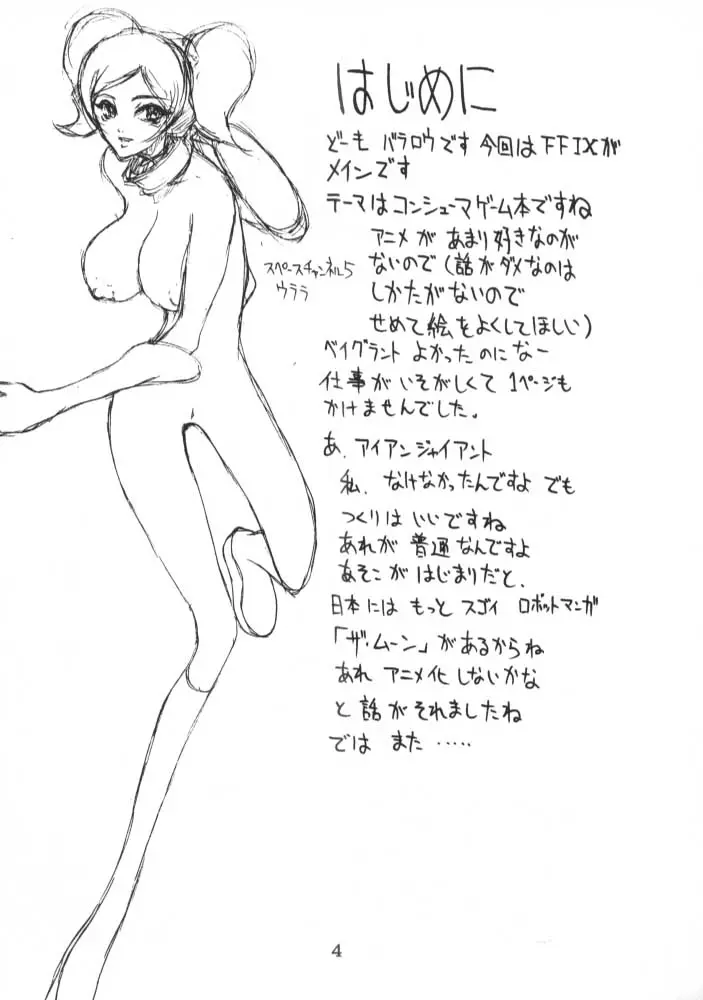 はじめに
どーも バラロウです 今回はFFIXが
メインです
テーマはコンシューマゲーム本ですね
アニメが あまり好きなのが
ないので（話がダメなのは
しかたがないので
せめて絵をよくしてほしい）
ベイグラント よかったのになー
仕事がいそがしくて 1ページも
かけませんでした。
あ、アイアンジャイアント
私、なけなかったんですよ でも
つくりはいいですね
あれが 普通なんですよ
あそこが はじまりだと、
日本には もっと スゴイ ロボットマンガ
「ザ・ムーン」があるからね
あれ アニメ化 しないかな
と 話が それましたね
では また ‥‥‥
スペースチャンネル5
ウララ
4